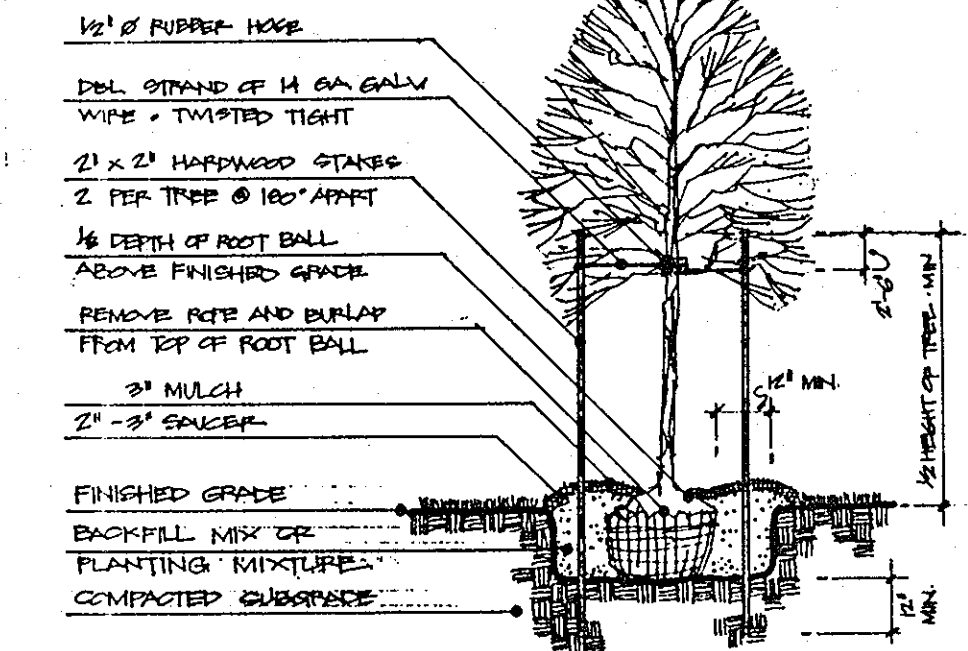 1/2" Ø RUBBER HOSE
DBL STRAND OF 14 GA. GALV
WIRE • TWISTED TIGHT
2" x 2" HARDWOOD STAKES
2 PER TREE @ 180° APART
1/8 DEPTH OF ROOT BALL
ABOVE FINISHED GRADE
REMOVE ROPE AND BURLAP
FROM TOP OF ROOT BALL
3" MULCH
2" - 3" SAUCER
FINISHED GRADE
BACKFILL MIX OR
PLANTING MIXTURE
COMPACTED SUBGRADE
12" MIN.
1/2 HEIGHT OF TREE • MIN
12"
MIN.